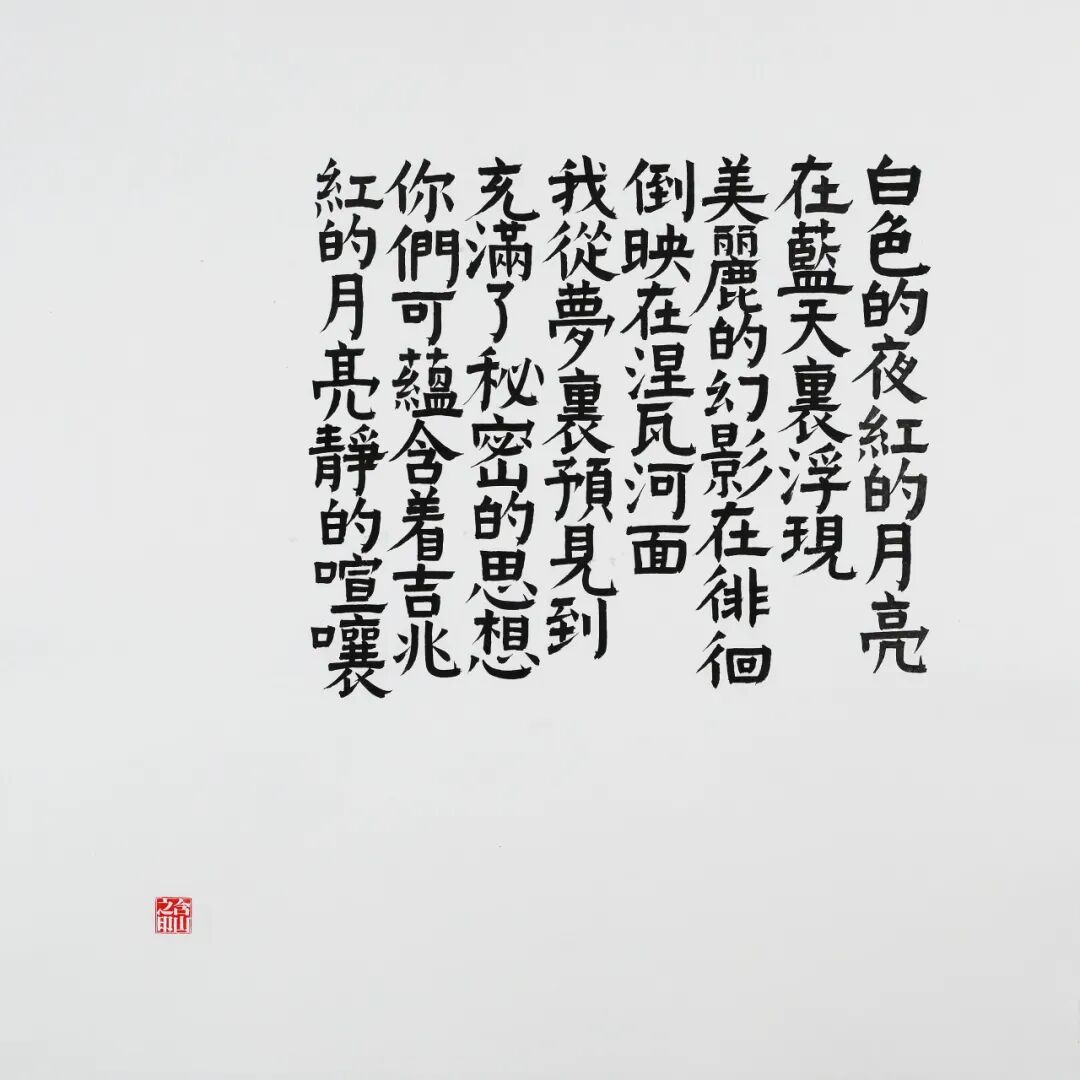 白色的夜紅的月亮
在藍天裏浮現
美麗的幻影在徘徊
倒映在涅瓦河面
我從夢裏預見到
充滿了秘密的思想
你們可蘊含着吉兆
紅的月亮靜的喧嚷
含山之印